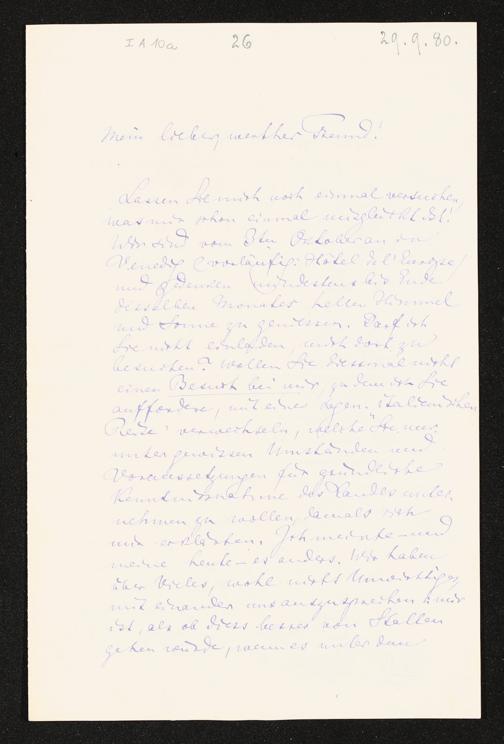 I A 10a 26 29.9.80.
Mein lieber, werther Freund!
Lassen Sie mich noch einmal versuchen,
was mir schon einmal missglückt ist!
Wir sind vom 3ten Oktober an in
Venedig (vorläufig: Hôtel de l'Europe)
und gedenken mindestens bis Ende
desselben Monates hellen Himmel
und Sonne zu geniessen. Darf ich
Sie nicht einladen, mich dort zu
besuchen? Wollen Sie diessmal nicht
einen Besuch bei mir, zu dem ich Sie
auffordere, mit einer sogen. italienischen
Reise verwechseln, welche Sie nur
unter gewissen Umständen und
Voraussetzungen für gründliche
Kenntnissnahme des Landes unter-
nehmen zu wollen, damals sich
mir erklärten. Ich meinte – und
meine heute – es anders. Wir haben
über Vieles, wohl nicht Unwichtiges
mit einander uns auszusprechen: mir
ist, als ob diess besser von Statten
gehen würde, wenn es unter dem